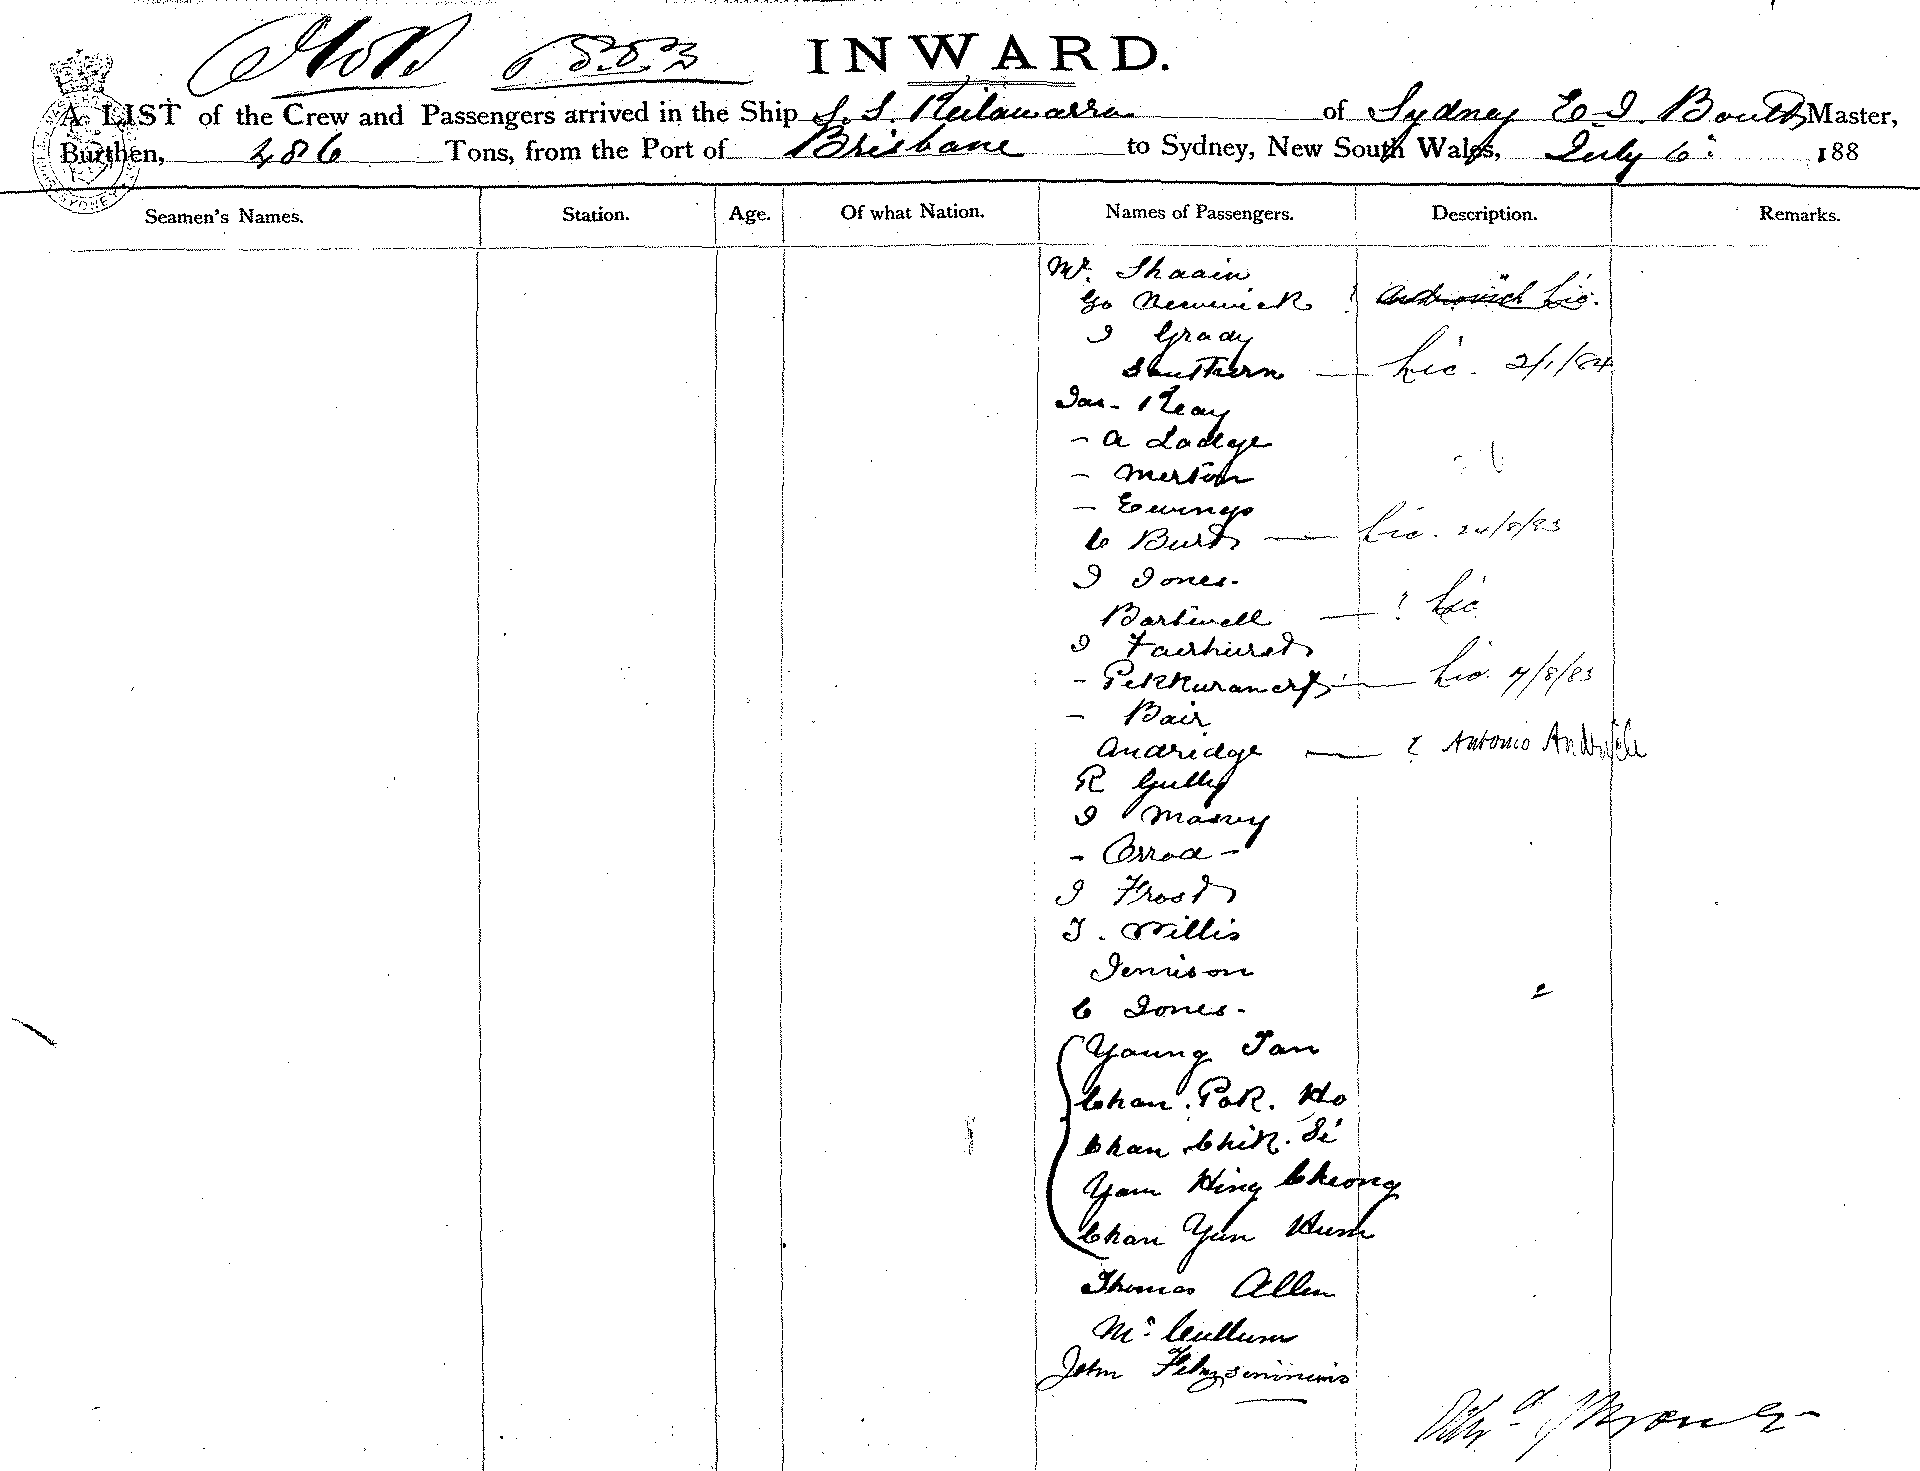 INWARD.
A LIST of the Crew and Passengers arrived in the Ship S. S. Keilawarra of Sydney E. I. Boult Master,
Burthen, 486 Tons, from the Port of Brisbane to Sydney, New South Wales, July 6: 188
Seamen's Names. Station. Age. Of what Nation. Names of Passengers. Description. Remarks.
Mr. Thaain
Go Newwick ? Lic.
J Grady
Southern — Lic. 2/1/84
Jas. Keay
- A Lodge
- Merton
- Ewings
C Burt — Lic. 24/8/83
J Jones.
Bardwell — ? Lic
J Fairhurst
- — Lic. 7/8/83
- Bair
Andridge — ? Antonio Andrvich
R Gully
J Massey
- Orrod -
J Frost
T. Willis
Jenison
C Jones.
Young Tan
Chan Pok. Ho
Chan Chik. Si
Yam Hing Cheong
Chan Yun Hum
Thomas Allen
Mc. Cullum
John Fitzsimmins